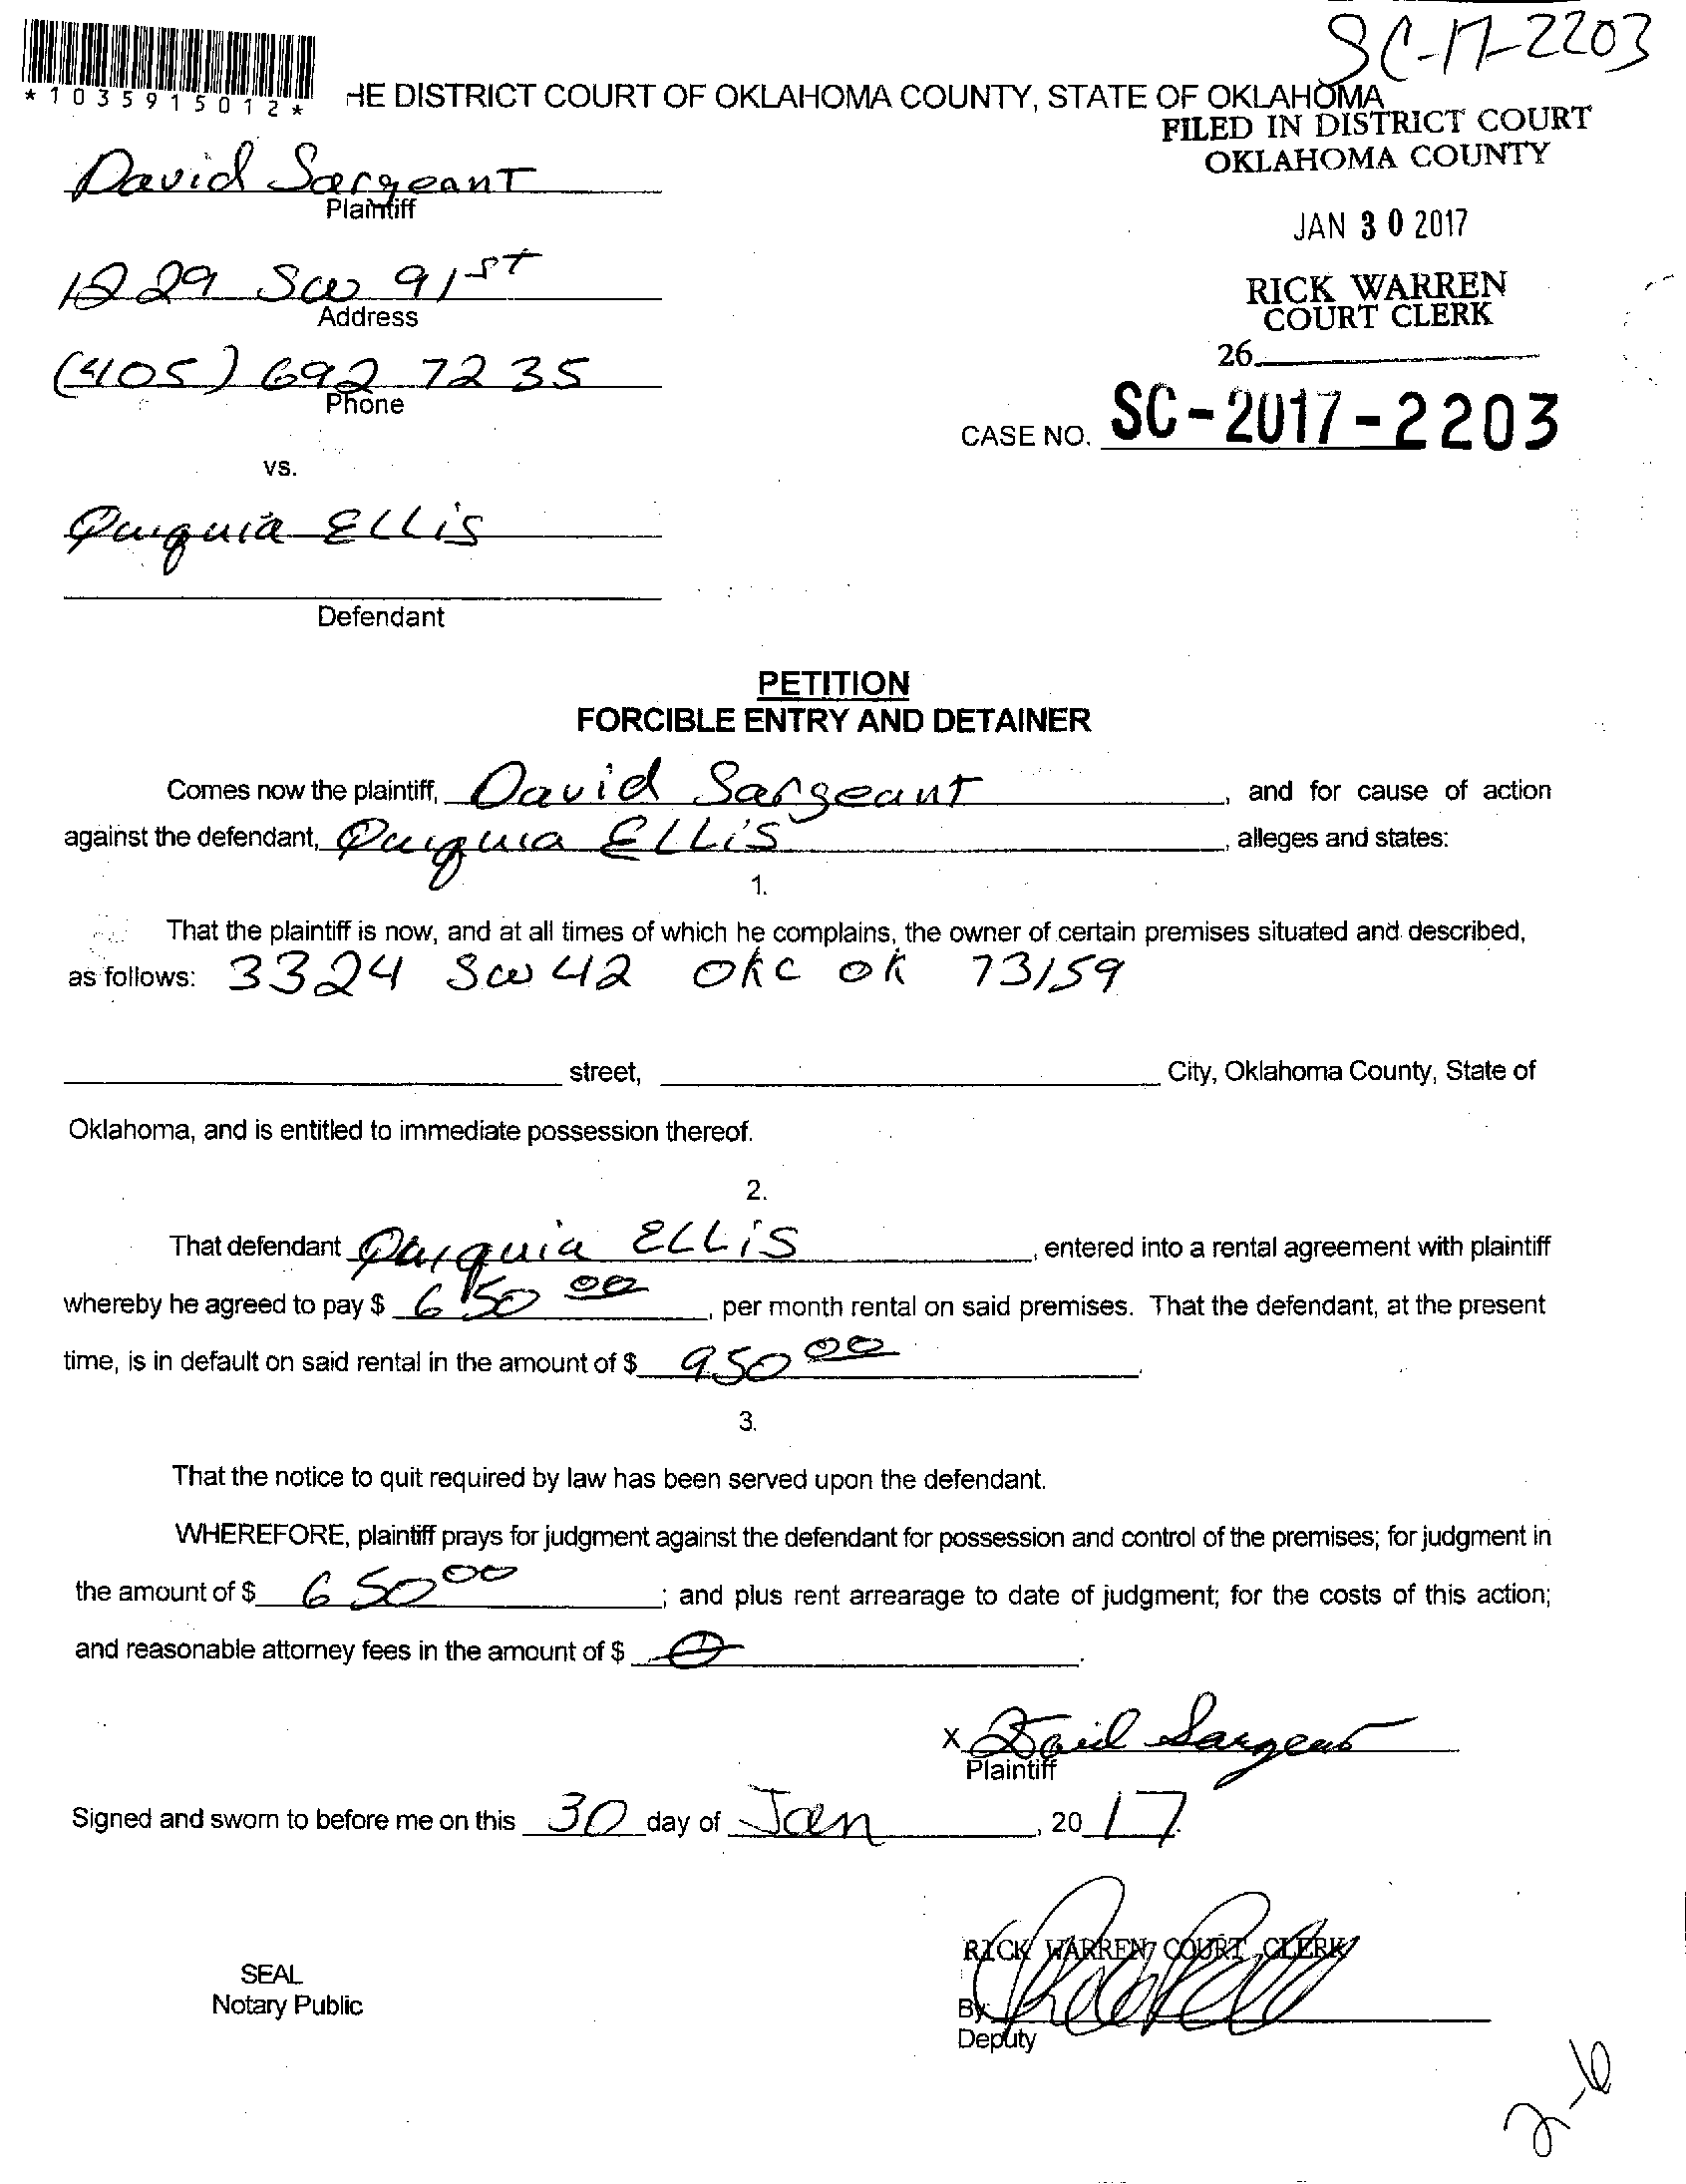 SC-17-2203
*1035915012*
HE DISTRICT COURT OF OKLAHOMA COUNTY, STATE OF OKLAHOMA
FILED IN DISTRICT COURT
OKLAHOMA COUNTY
David Sargeant
Plaintiff
JAN 30 2017
1229 SW 91st
Address
RICK WARREN
COURT CLERK
(405) 692 7235
Phone
26
CASE NO. SC-2017-2203
vs.
Quiquia ELLis
Defendant
PETITION
FORCIBLE ENTRY AND DETAINER
Comes now the plaintiff, David Sargeant, and for cause of action
against the defendant, Quiquia ELLiS, alleges and states:
1.
That the plaintiff is now, and at all times of which he complains, the owner of certain premises situated and described,
as follows: 3324 SW 42 OKC OK 73159
street, City, Oklahoma County, State of
Oklahoma, and is entitled to immediate possession thereof.
2.
That defendant Quiquia ELLiS, entered into a rental agreement with plaintiff
whereby he agreed to pay $ 650 00, per month rental on said premises. That the defendant, at the present
time, is in default on said rental in the amount of $ 950 00.
3.
That the notice to quit required by law has been served upon the defendant.
WHEREFORE, plaintiff prays for judgment against the defendant for possession and control of the premises; for judgment in
the amount of $ 650 00; and plus rent arrearage to date of judgment; for the costs of this action;
and reasonable attorney fees in the amount of $ 0.
x David Sargeant
Plaintiff
Signed and sworn to before me on this 30 day of Jan, 20 17.
RICK WARREN, COURT CLERK
SEAL
Notary Public
By:
Deputy
2-6